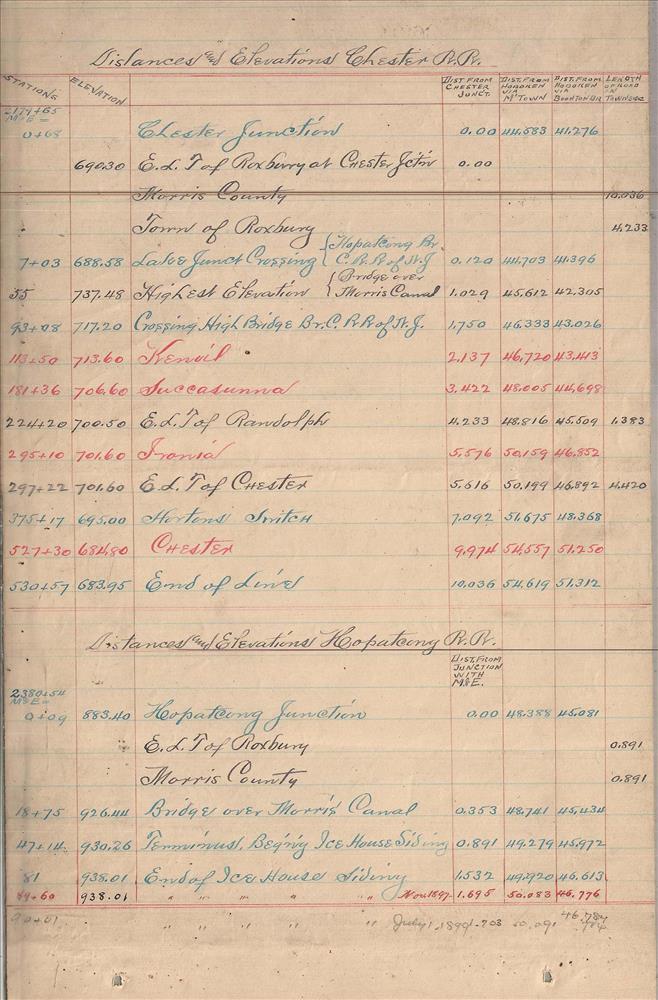 Distances and Elevations Chester R.R.
STATIONS ELEVATION DIST FROM CHESTER JUNCT. DIST. FROM HOBOKEN VIA M'TOWN DIST. FROM HOBOKEN VIA BOONTON BR LENGTH OF ROAD IN TOWNS &C
M&E =
0+08 Chester Junction 0.00 44.583 41.276
690.30 E. L. T of Roxbury at CHESTER Jct'n 0.00
Morris County 10.036
Town of Roxbury 4.233
7+03 688.58 Lake Junct Crossing { Hopatcong Br. C. R.R. of N.J 0.120 44.703 41.396
55 737.48 Highest Elevation { Bridge over Morris Canal 1.029 45.612 42.305
93+08 717.20 Crossing High Bridge Br. C. R.R of N.J. 1.750 46.333 43.026
113+50 713.60 Kenvil 2.137 46.720 43.413
181+36 706.60 Succasunna 3.422 48.005 44.698
224+20 700.50 E. L. T of Randolph 4.233 48.816 45.509 1.383
295+10 701.60 Ironia 5.576 50.159 46.852
297+22 701.60 E. L. T of CHESTER 5.616 50.199 46.892 4.420
375+17 695.00 Hortons Switch 7.092 51.675 48.368
527+30 684.80 CHESTER 9.974 54.557 51.250
530+57 683.95 End of Line 10.036 54.619 51.312
Distances and Elevations Hopatcong R.R.
DIST. FROM JUNCTION WITH M&E.
2380+54
M&E =
0+09 883.40 Hopatcong Junction 0.00 48.388 45.081
E. L. T of Roxbury 0.891
Morris County 0.891
18+75 926.44 Bridge over Morris Canal 0.353 48.741 45.434
47+14 930.26 Terminus, Beg'n'g Ice House Siding 0.891 49.279 45.972
81 938.01 End of Ice House Siding 1.532 49.920 46.613
89+60 938.01 " " " " " Nov. 1897 1.695 50.083 46.776
90+01 " " " " " July 1, 1899 1.703 50.091 46.784